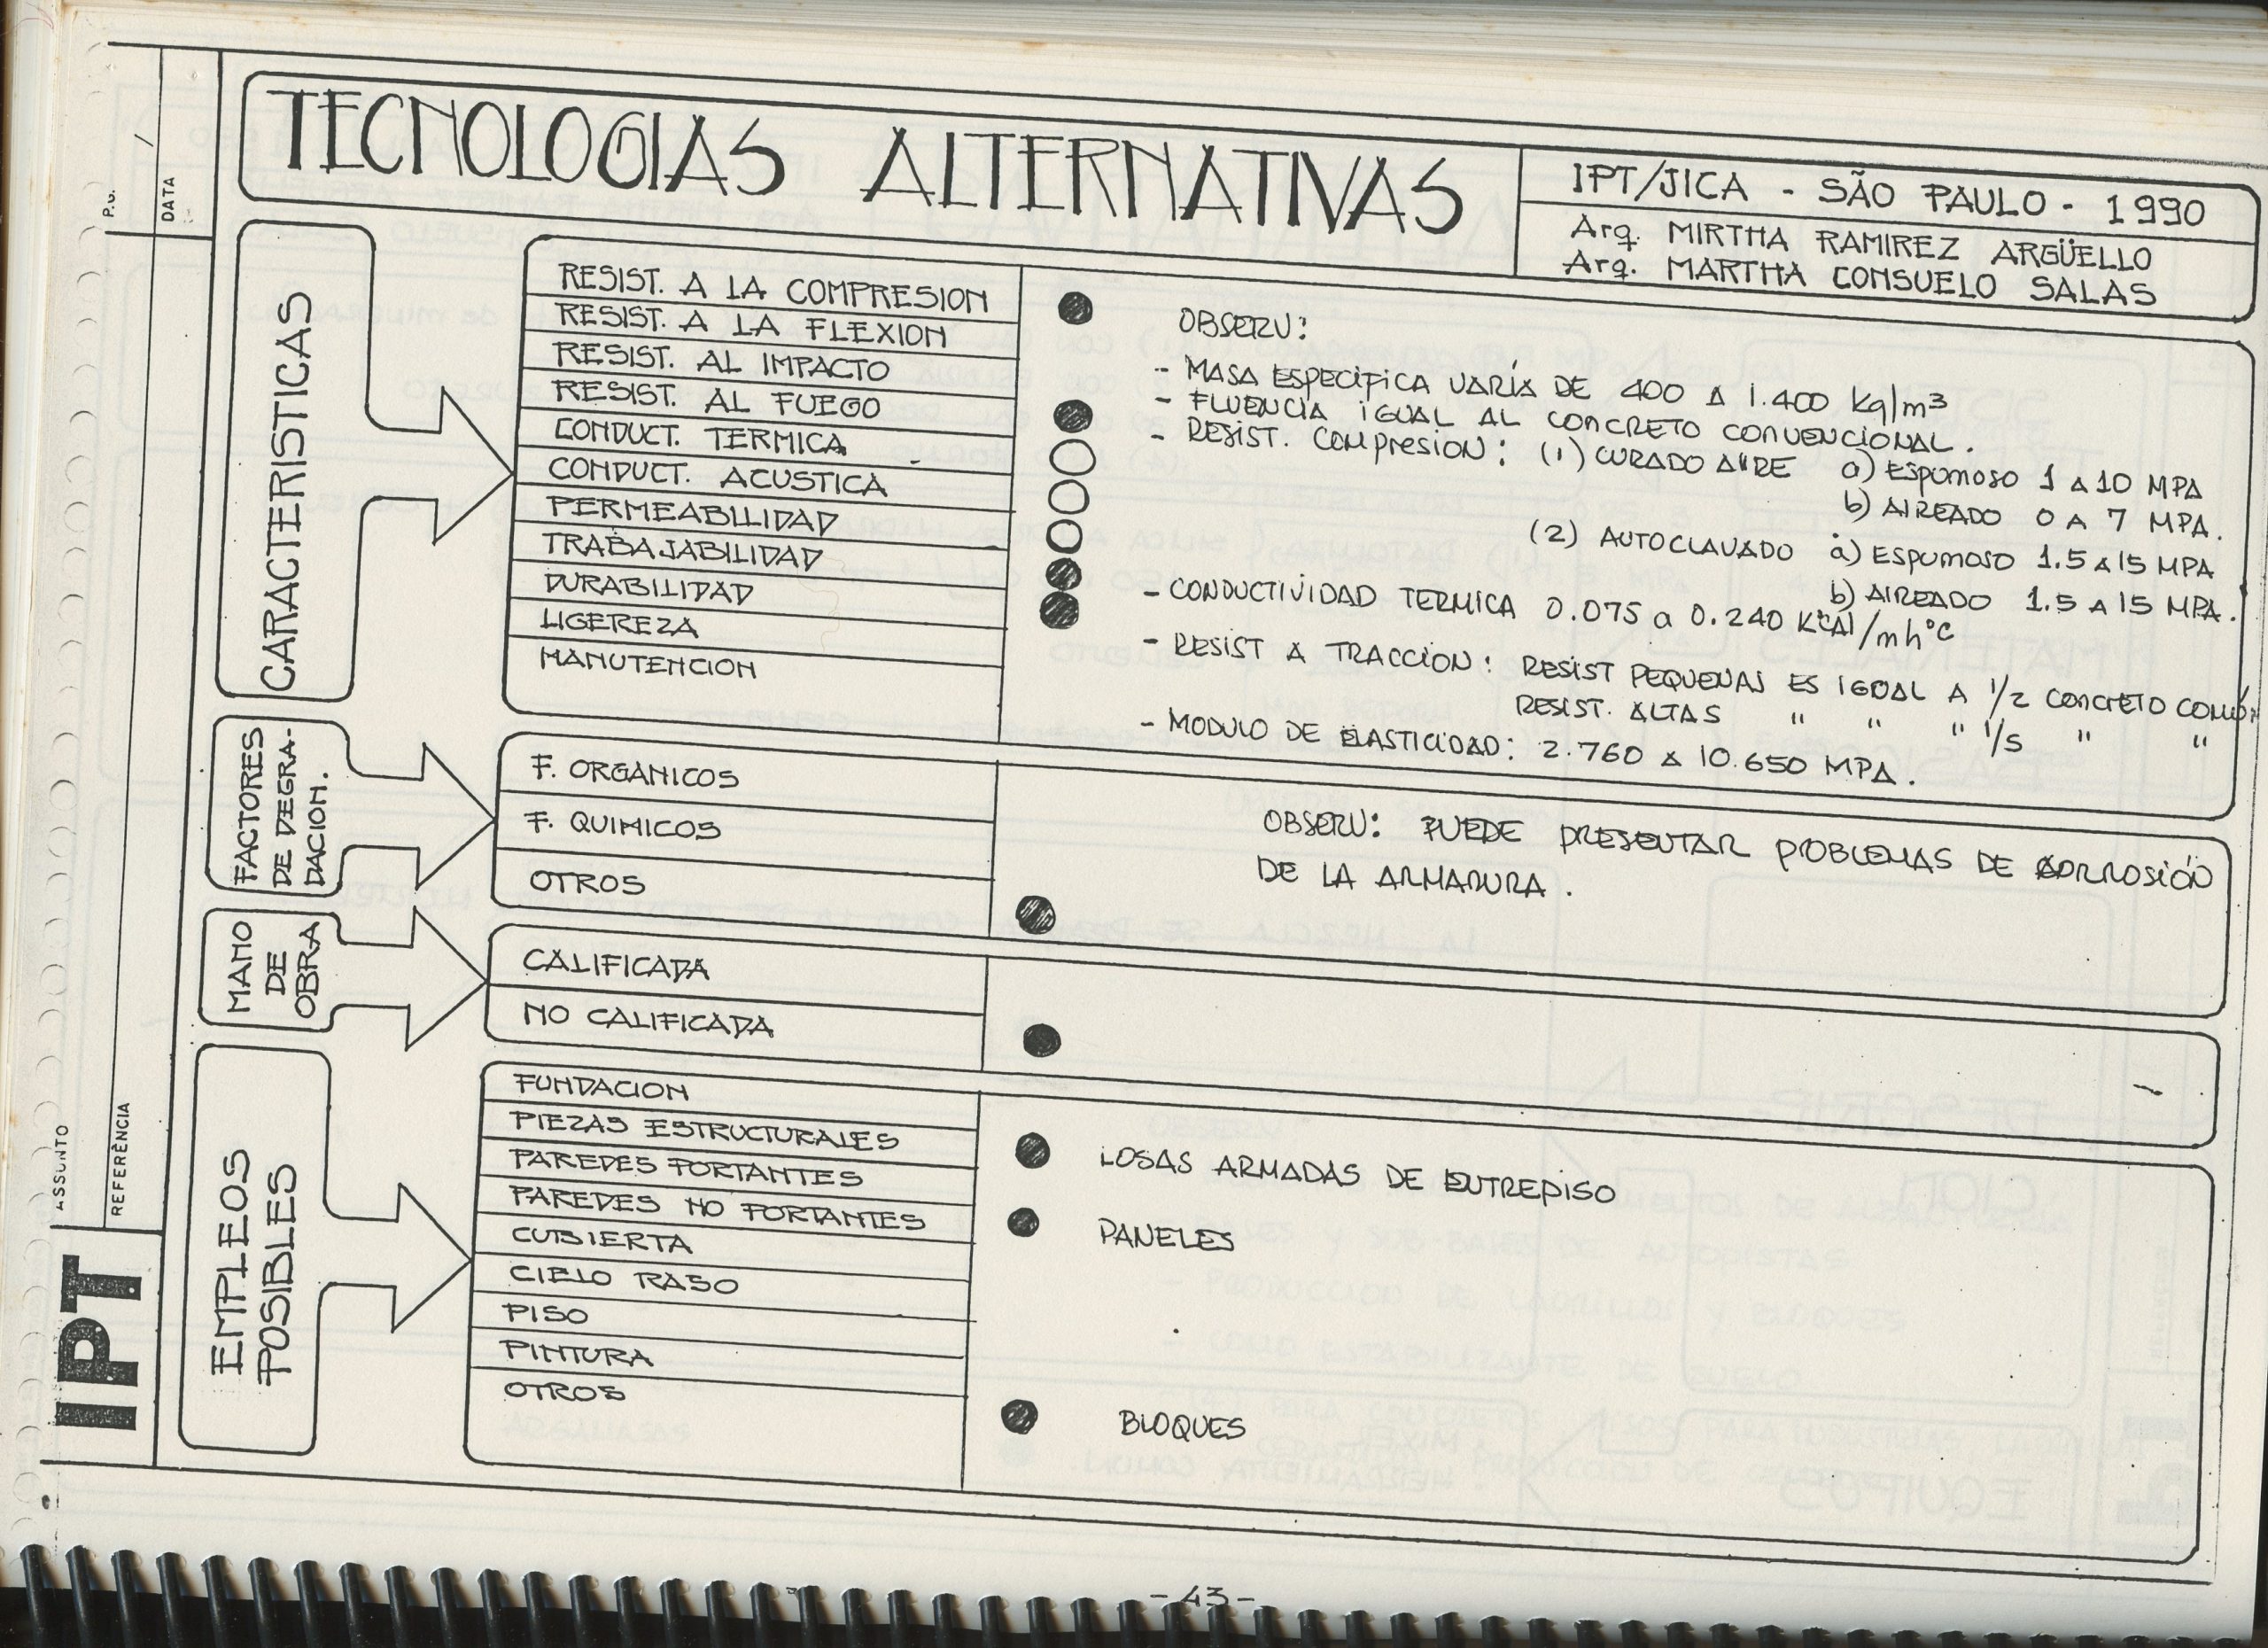 TECNOLOGIAS ALTERNATIVAS
IPT/JICA - SÃO PAULO - 1990
Arq. MIRTHA RAMIREZ ARGÜELLO
Arq. MARTHA CONSUELO SALAS
P.G.
DATA
ASSUNTO
REFERÊNCIA
IPT
CARACTERISTICAS
RESIST. A LA COMPRESION
RESIST. A LA FLEXION
RESIST. AL IMPACTO
RESIST. AL FUEGO
CONDUCT. TERMICA
CONDUCT. ACUSTICA
PERMEABILIDAD
TRABAJABILIDAD
DURABILIDAD
LIGEREZA
MANUTENCION
OBSERV:
- MASA ESPECÍFICA VARÍA DE 400 A 1.400 Kg/m³
- FLUENCIA IGUAL AL CONCRETO CONVENCIONAL.
- RESIST. COMPRESION: (1) CURADO AIRE a) ESPUMOSO 1 A 10 MPA
b) AIREADO 0 A 7 MPA.
(2) AUTOCLAVADO a) ESPUMOSO 1.5 A 15 MPA
b) AIREADO 1.5 A 15 MPA.
- CONDUCTIVIDAD TERMICA 0.075 a 0.240 KCAl/mh°C
- RESIST A TRACCION: RESIST PEQUENAS ES IGUAL A 1/2 CONCRETO COMÚN
RESIST. ALTAS " " " 1/5 " "
- MODULO DE ELASTICIDAD: 2.760 A 10.650 MPA.
FACTORES
DE DEGRA-
DACION.
F. ORGANICOS
F. QUIMICOS
OTROS
OBSERV: PUEDE PRESENTAR PROBLEMAS DE CORROSIÓN
DE LA ARMADURA.
MANO
DE
OBRA
CALIFICADA
NO CALIFICADA
EMPLEOS
POSIBLES
FUNDACION
PIEZAS ESTRUCTURALES
PAREDES PORTANTES
PAREDES NO PORTANTES
CUBIERTA
CIELO RASO
PISO
PINTURA
OTROS
LOSAS ARMADAS DE ENTREPISO
PANELES
BLOQUES
- 43 -